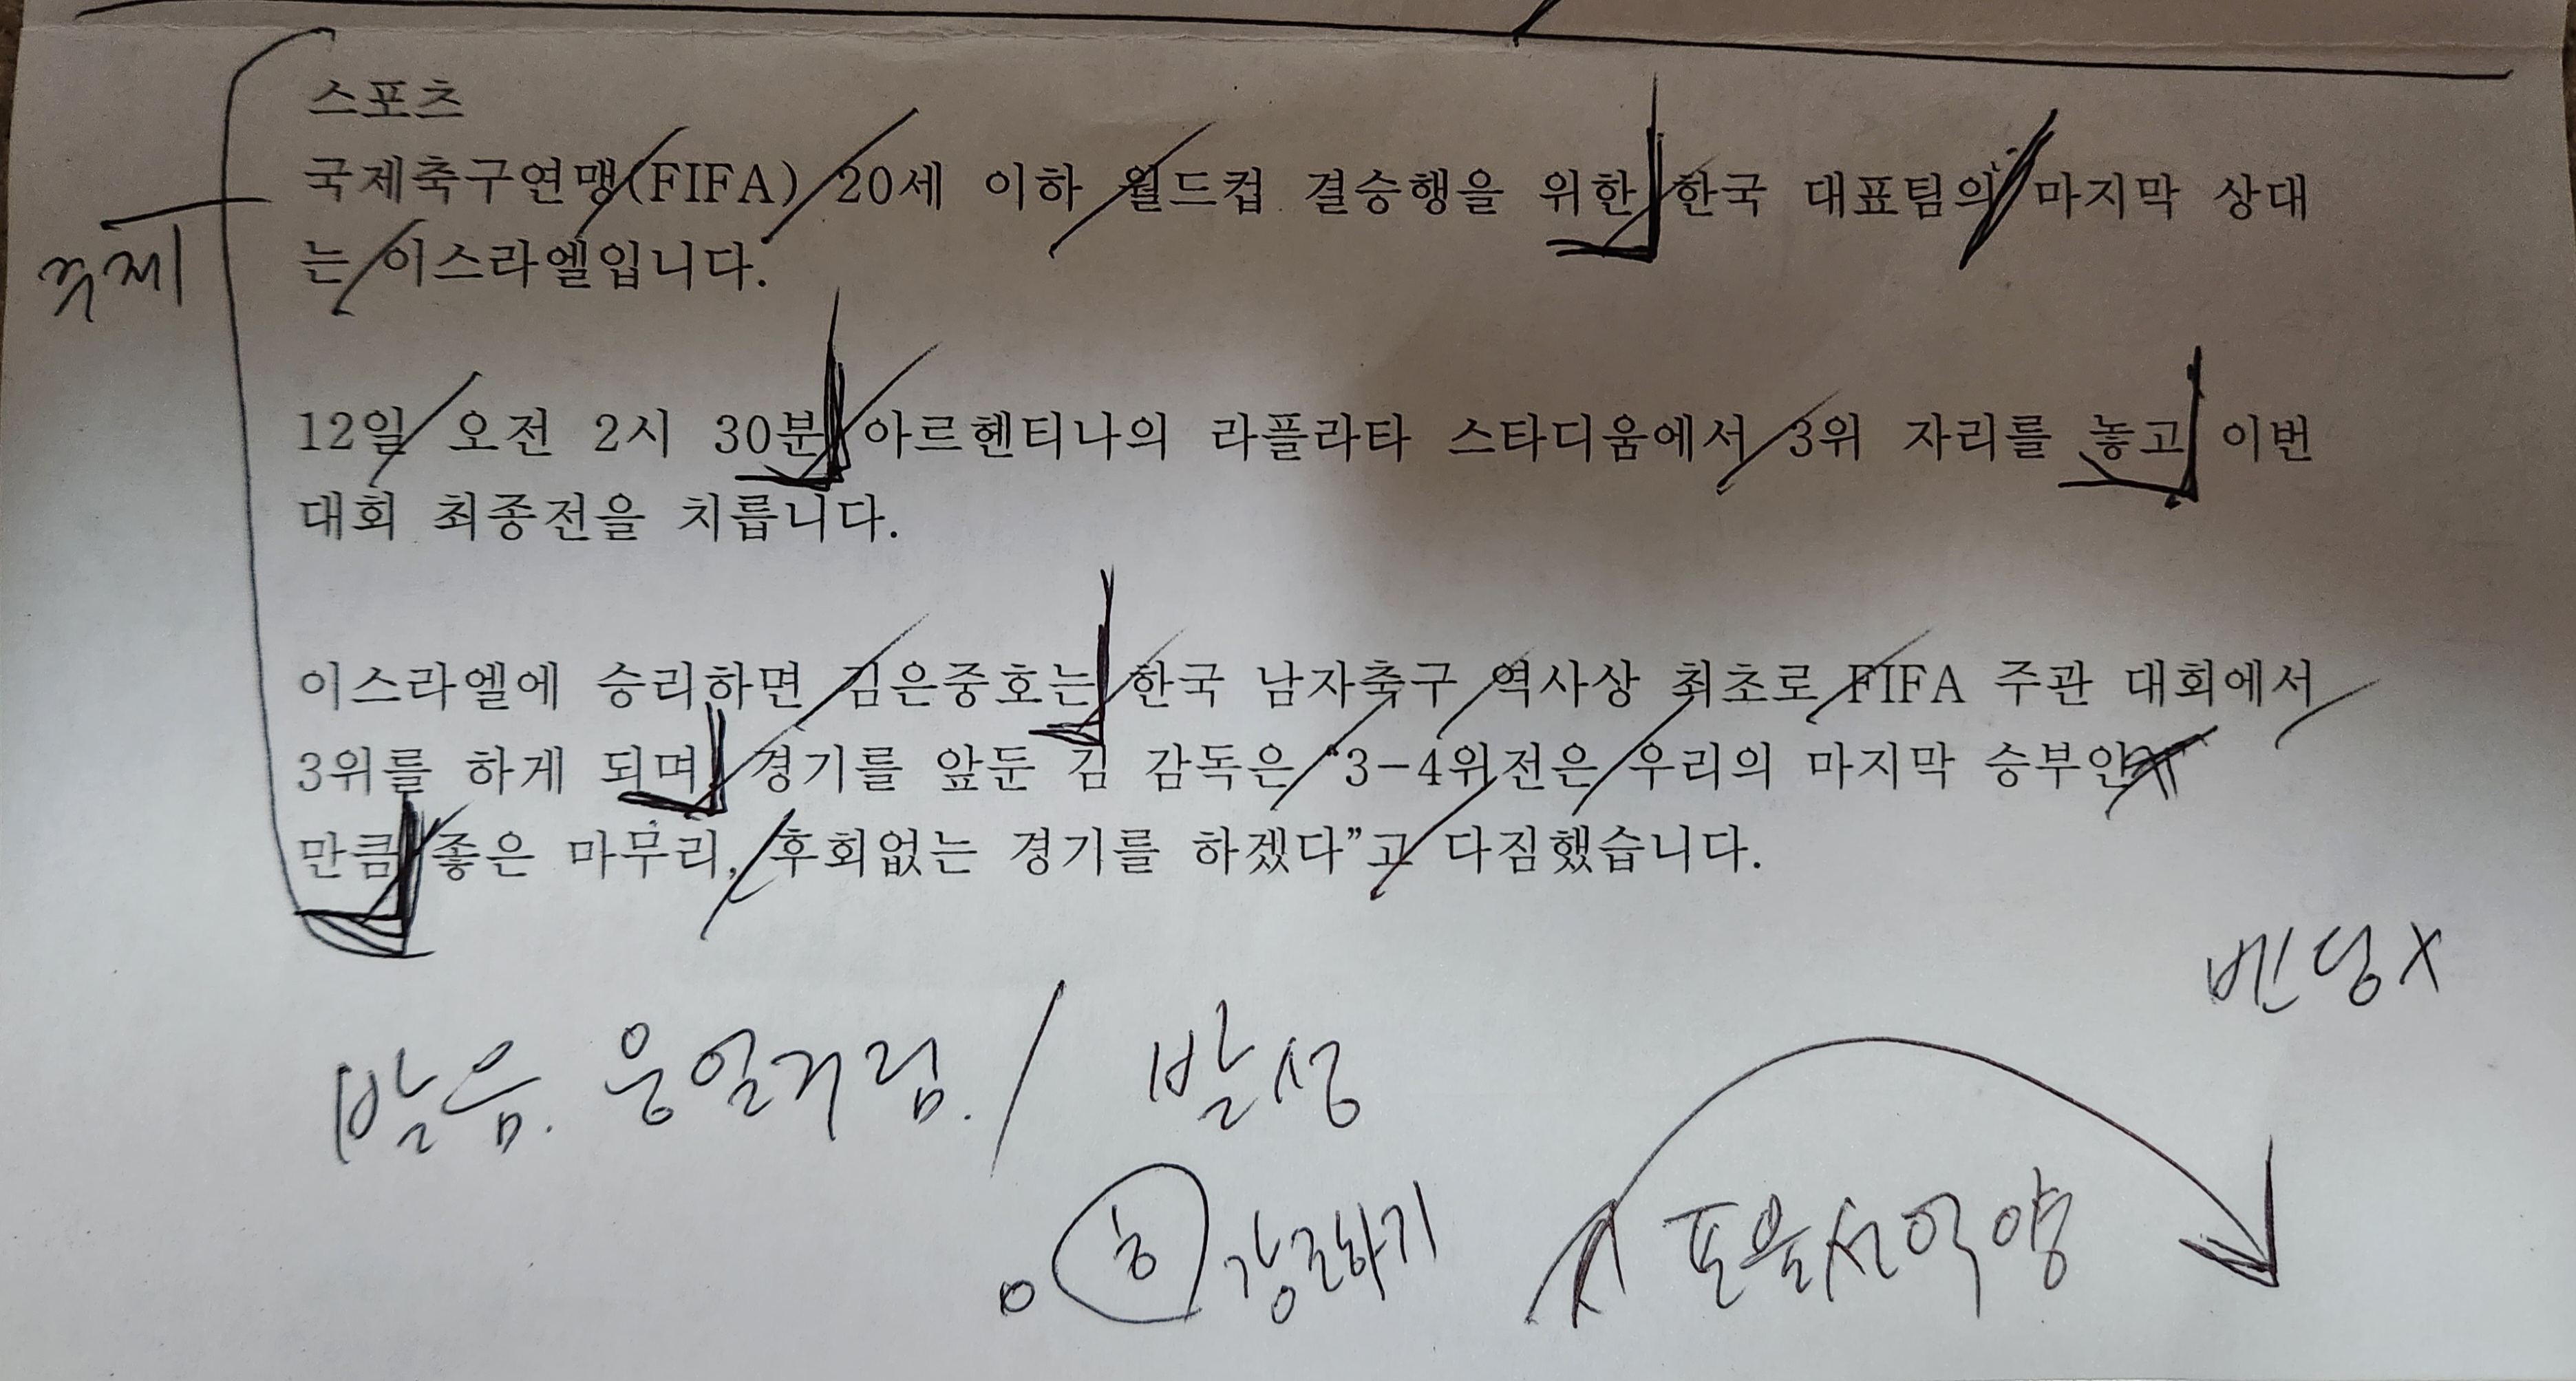 스포츠
국제축구연맹(FIFA) 20세 이하 월드컵 결승행을 위한 한국 대표팀의 마지막 상대
는 이스라엘입니다.
주제
12일 오전 2시 30분 아르헨티나의 라플라타 스타디움에서 3위 자리를 놓고 이번
대회 최종전을 치릅니다.
이스라엘에 승리하면 김은중호는 한국 남자축구 역사상 최초로 FIFA 주관 대회에서
3위를 하게 되며 경기를 앞둔 김 감독은 “3-4위전은 우리의 마지막 승부인
만큼 좋은 마무리, 후회없는 경기를 하겠다”고 다짐했습니다.
벤딩 X
발음. 웅얼거림. / 발성
ㅎ 강조하기
포물선 억양